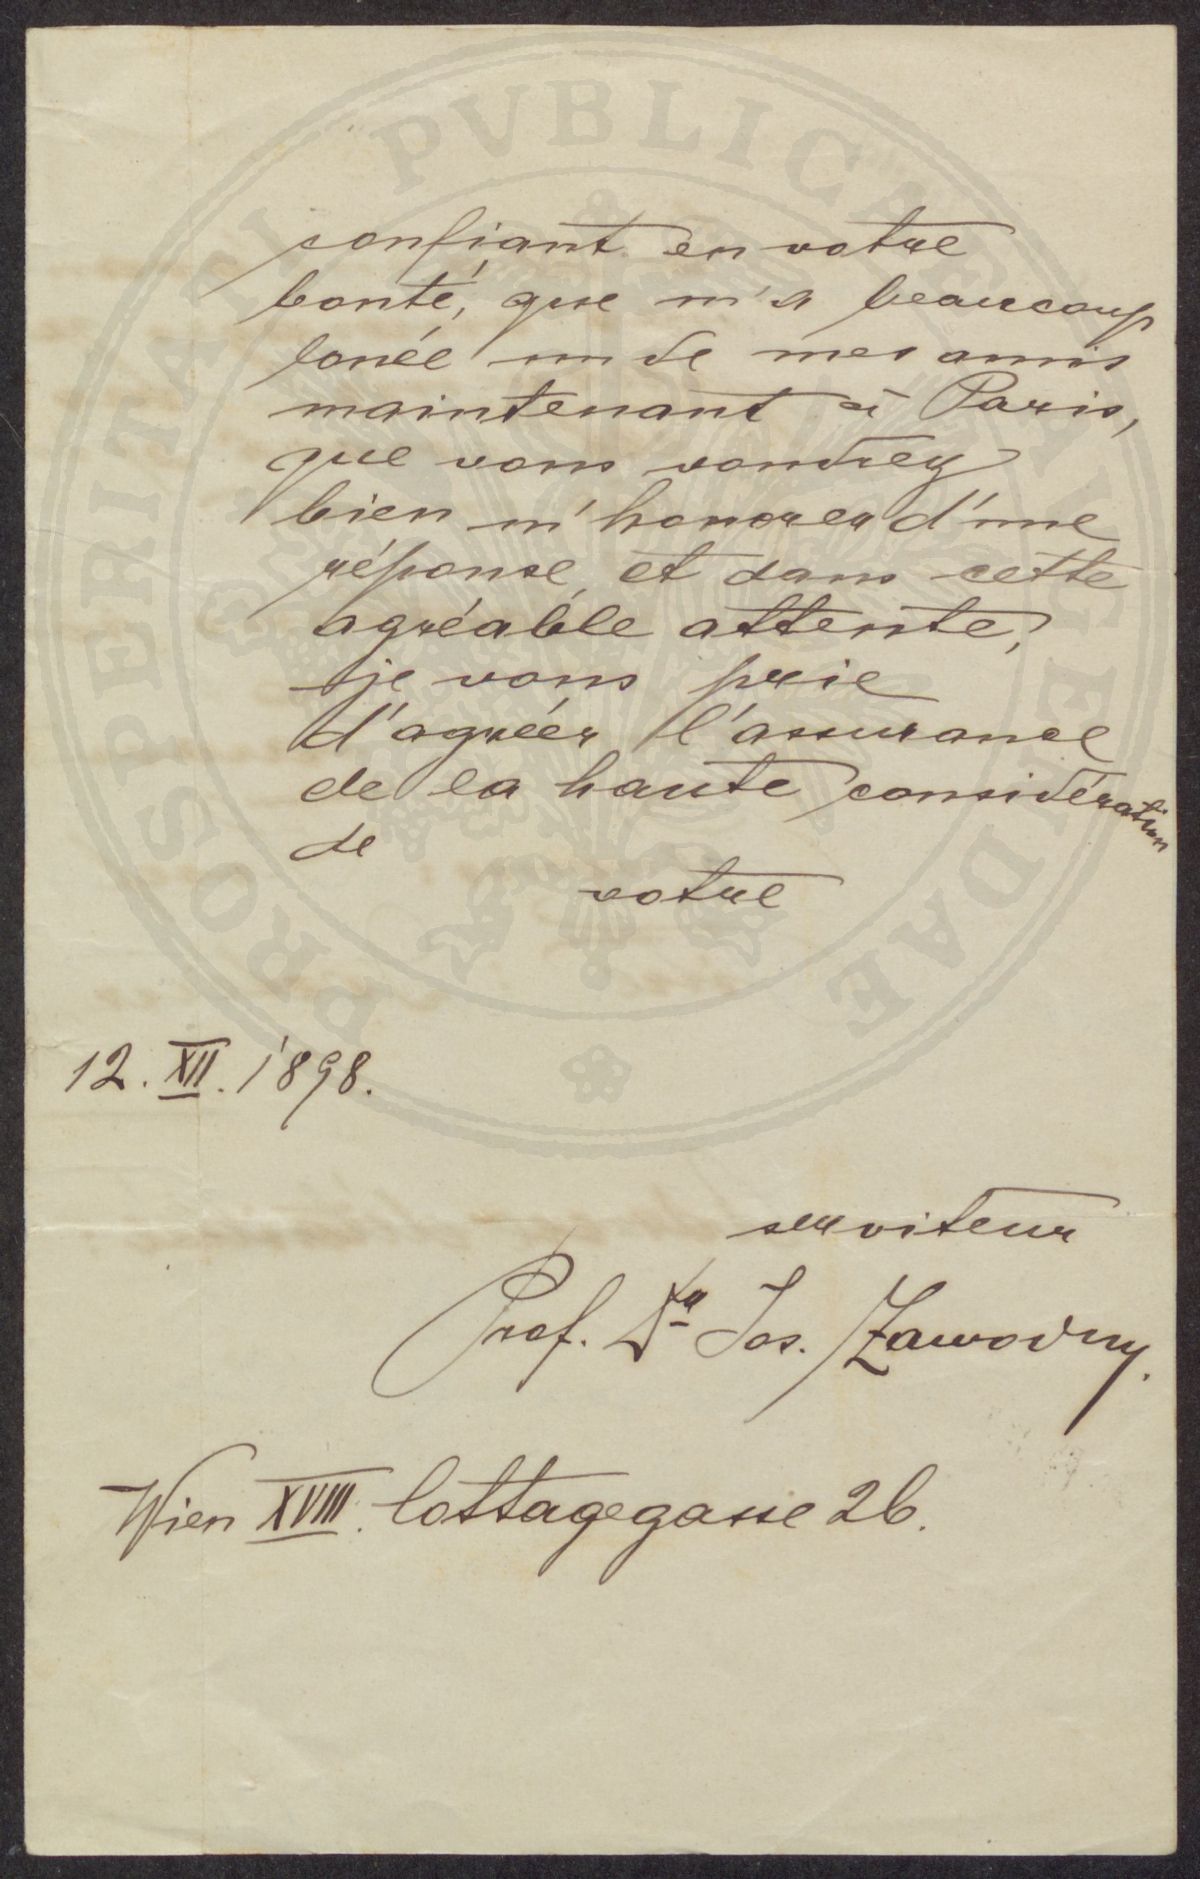 confiant en votre
bonté, que m'a beaucoup
louée un de mes amis
maintenant à Paris,
que vous voudrez
bien m'honorer d'une
réponse, et dans cette
agréable attente,
je vous prie
d'agréer l'assurance
de la haute considération
de
votre
12. XII. 1898.
serviteur
Prof. Dr Jos. Zawodny.
Wien XVIII. Cottagegasse 26.
PROSPERITATI PVBLICAE AVGENDAE